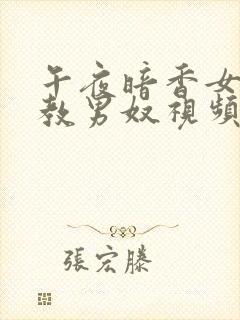 午夜暗香女
教男奴視頻
張宏滕